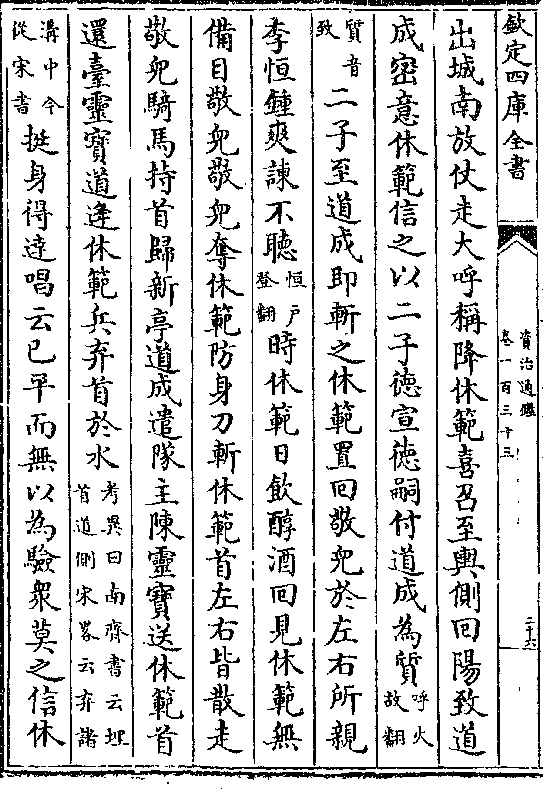 欽定四庫全書
資治通鑑
卷一百三十三
二十六
出城南放仗走大呼稱降休範喜召至輿側回陽致道
成密意休範信之以二子德宣德嗣付道成為質呼火故翻
質音致二子至道成即斬之休範置回敬兒於左右所親
李恒鍾爽諫不聽恒戶登翻時休範日飲醇酒回見休範無
備目敬兒敬兒奪休範防身刀斬休範首左右皆散走
敬兒騎馬持首歸新亭道成遣隊主陳靈寶送休範首
還臺靈寶道逢休範兵弃首於水考異曰南齊書云埋首道側宋畧云弃諸
溝中今從宋書挺身得達唱云已平而無以為驗衆莫之信休